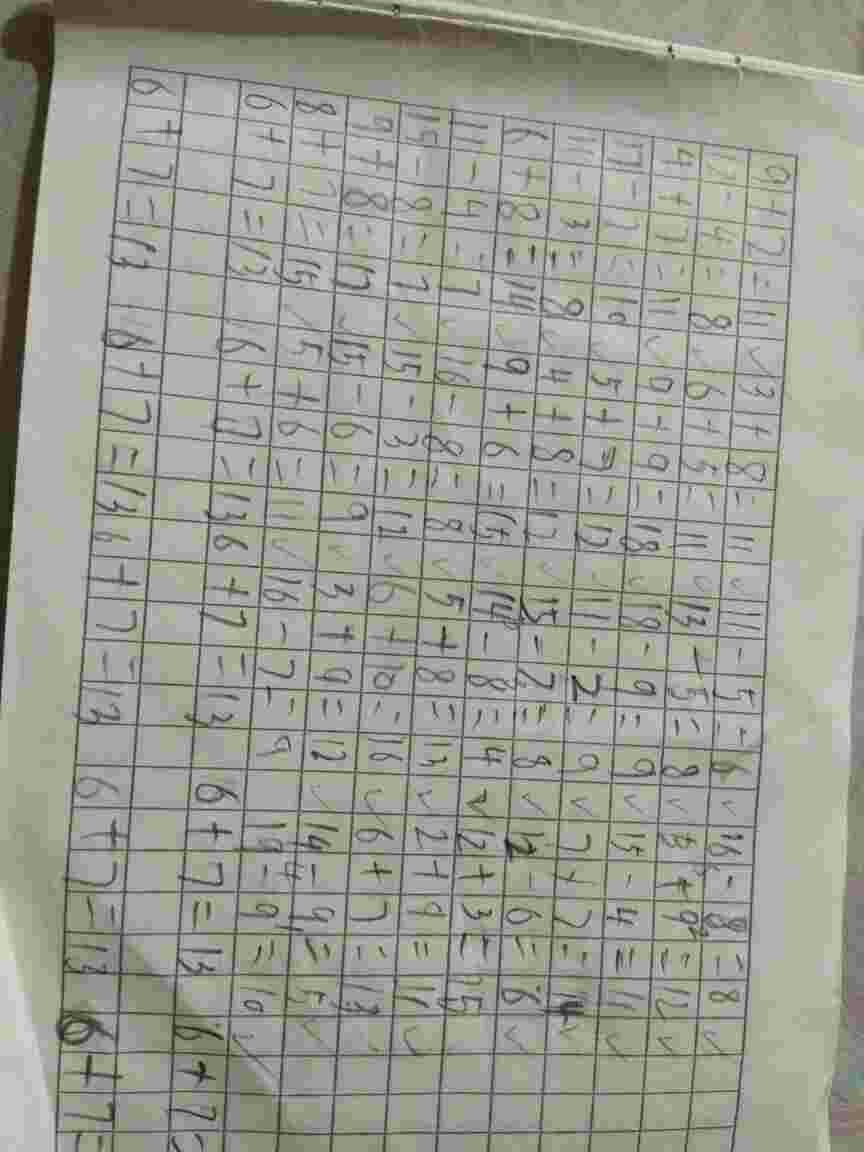 9+2=11 ✓ 3+8=11 ✓ 11-5=6 ✓ 16-8=8 ✓
12-4=8 ✓ 6+5=11 ✓ 13-5=8 ✓ 3+9=12 ✓
4+7=11 ✓ 9+9=18 ✓ 18-9=9 ✓ 15-4=11 ✓
17-7=10 ✓ 5+7=12 ✓ 11-2=9 ✓ 7+7=14 ✓
11-3=8 ✓ 4+8=12 ✓ 15-7=8 ✓ 12-6=6 ✓
6+8=14 ✓ 9+6=15 ✓ 14-8=4 ✓ 12+3=15
11-4=7 ✓ 16-8=8 ✓ 5+8=13 ✓ 2+9=11 ✓
15-8=7 ✓ 15-3=12 ✓ 6+10=16 ✓ 6+7=13
9+8=17 ✓ 15-6=9 ✓ 3+9=12 ✓ 14-9=5 ✓
8+7=15 ✓ 5+6=11 ✓ 16-7=9 19-9=10 ✓
6+7=13 6+7=13 6+7=13 6+7=13 6+7=
6+7=13 6+7=13 6+7=13 6+7=13 6+7=